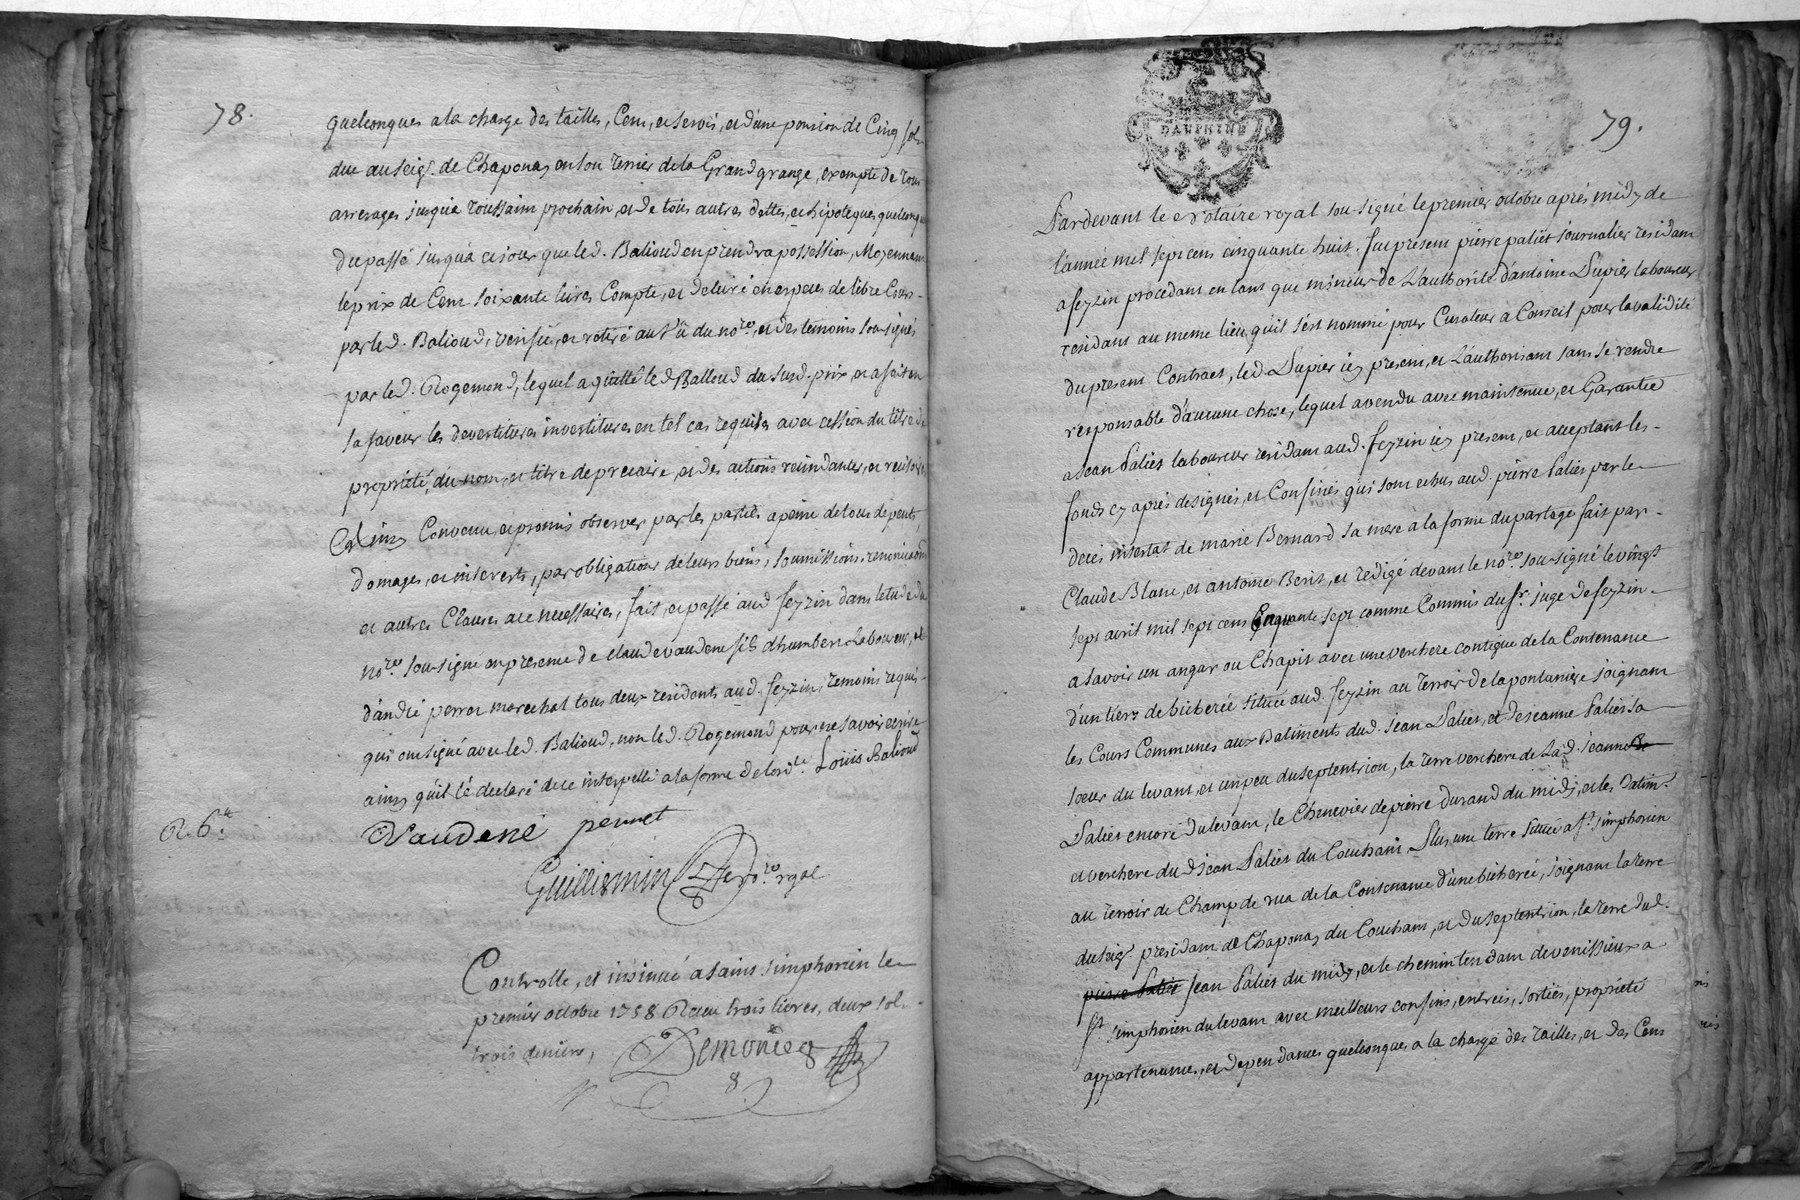 78.
quelconques a la charge des tailles, Cens, et servis, et d'une pension de Cinq sols
due au seigr. de Chaponay en son terrier de la Grand grange, exempte de tous
arrerages jusqu'a toussaint prochain, et de tous autres dettes, et hipoteques quelconques
du passé jusqu'a ce jour que led. Balioud en prendra possession, Moyennant
le prix de Cent soixante livres Compté, et delivré en especes de libre Cours-
par led. Balioud, verifié, et retiré au vû du nore. et des temoins sousignés
par led. Rogemond, lequel a quitté led Balloud du susd. prix, et a fait en
sa faveur les devestitures investitures en tel cas requises avec cession du titre de
propriété, du nom, et titre de precaire, et des actions rescindantes, et rescisoires
Et ainsy Convenu, et promis observer par les parties a peine de tous depents
domages, et interests, par obligations de leurs biens, soumissions, renonciations
et autres Clauses a ce necessaires, fait, et passé aud feyzin dans letude du
nore. sousigné en presence de claude vaudene fils d'humbert Laboureur, et
d'andré perret marechal tous deux residents aud. feyzin, temoins requis-
qui ont signé avec led. Balioud, non led. Rogemond pour ne savoir ecrire
ainsy qu'il l'a declaré de ce interpellé a la forme de lordce. Louis Balioud
R. 6tt
Vaudené perret
Guilliermin nore. royal
Controlle, et insinué a saint simphorien le
premier octobre 1758 Receu trois livres, deux sols
trois deniers,
79.
DAUPHINÉ
Pardevant le Notaire royal sou-signé le premier octobre aprés midy de
l'année mil sept cens cinquante huit. fut present pierre paliet journalier residant
a feyzin procedant en tant que mineur de L'authorité d'antoine Dupiér laboureur
residant au meme lieu qu'il s'est nommé pour Curateur a Conseil pour la validité
du present Contract, led. Dupier icy present, et L'authorisant sans se rendre
responsable d'aucune chose, lequel a vendu avec maintenue, et Garantie
a Jean Paliet laboureur residant aud. feyzin icy present, et acceptant les-
fonds cy aprés designés, et Confinés qui sont echus aud. pierre Paliet par le
decés intestat de marie Bernard sa mere a la forme du partage fait par-
Claude Blanc, et antoine Beriz, et redigé devant le nore. sou-signé le vingt
sept avril mil sept cens Cinquante sept comme Commis du sr. juge de feyzin-
a savoir un angar ou Chapit avec une verchere contigue de la Contenance
d'un tiers de bicherée située aud. feyzin au terroir de la pontaniére joignant
les Cours Communes aux Batiments dud. jean Paliet, et de jeanne Paliet sa
soeur du levant, et un peu du septentrion, la terre verchere de Lad. jeanne
Paliet encore du levant, le Chenevier de pierre durand du midy, et les Batim.
et verchere dud jean Paliet du Couchant. Plus une terre située a st. simphorien
au terroir de Champ de rua de la Contenance d'une bicherée, joignant la terre
du seigr. president de Chaponay du Couchant, et du septentrion, la terre dud.
pierre Paliet jean Paliet du midy, et le chemin tendant de venissieux a
st. simphorien du levant avec meilleurs confins, entrées, sorties, propriété
appartenances, et dependances quelconques a la charge des tailles, et des Cens